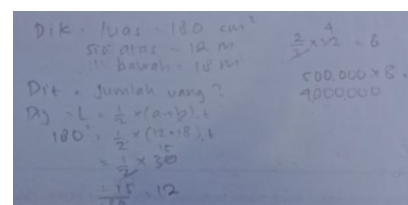 Dik = luas = 180 cm²
sisi atas = 12 m
" bawah = 18 m
Dit = Jumlah uang?
Dij = L = 1/2 × (a+b).t
180 = 1/2 × (12+18).t
= 1/2 × 30 15
= 15 = 12
2/3 × 12 4 = 8
500.000 × 8 =
4000.000